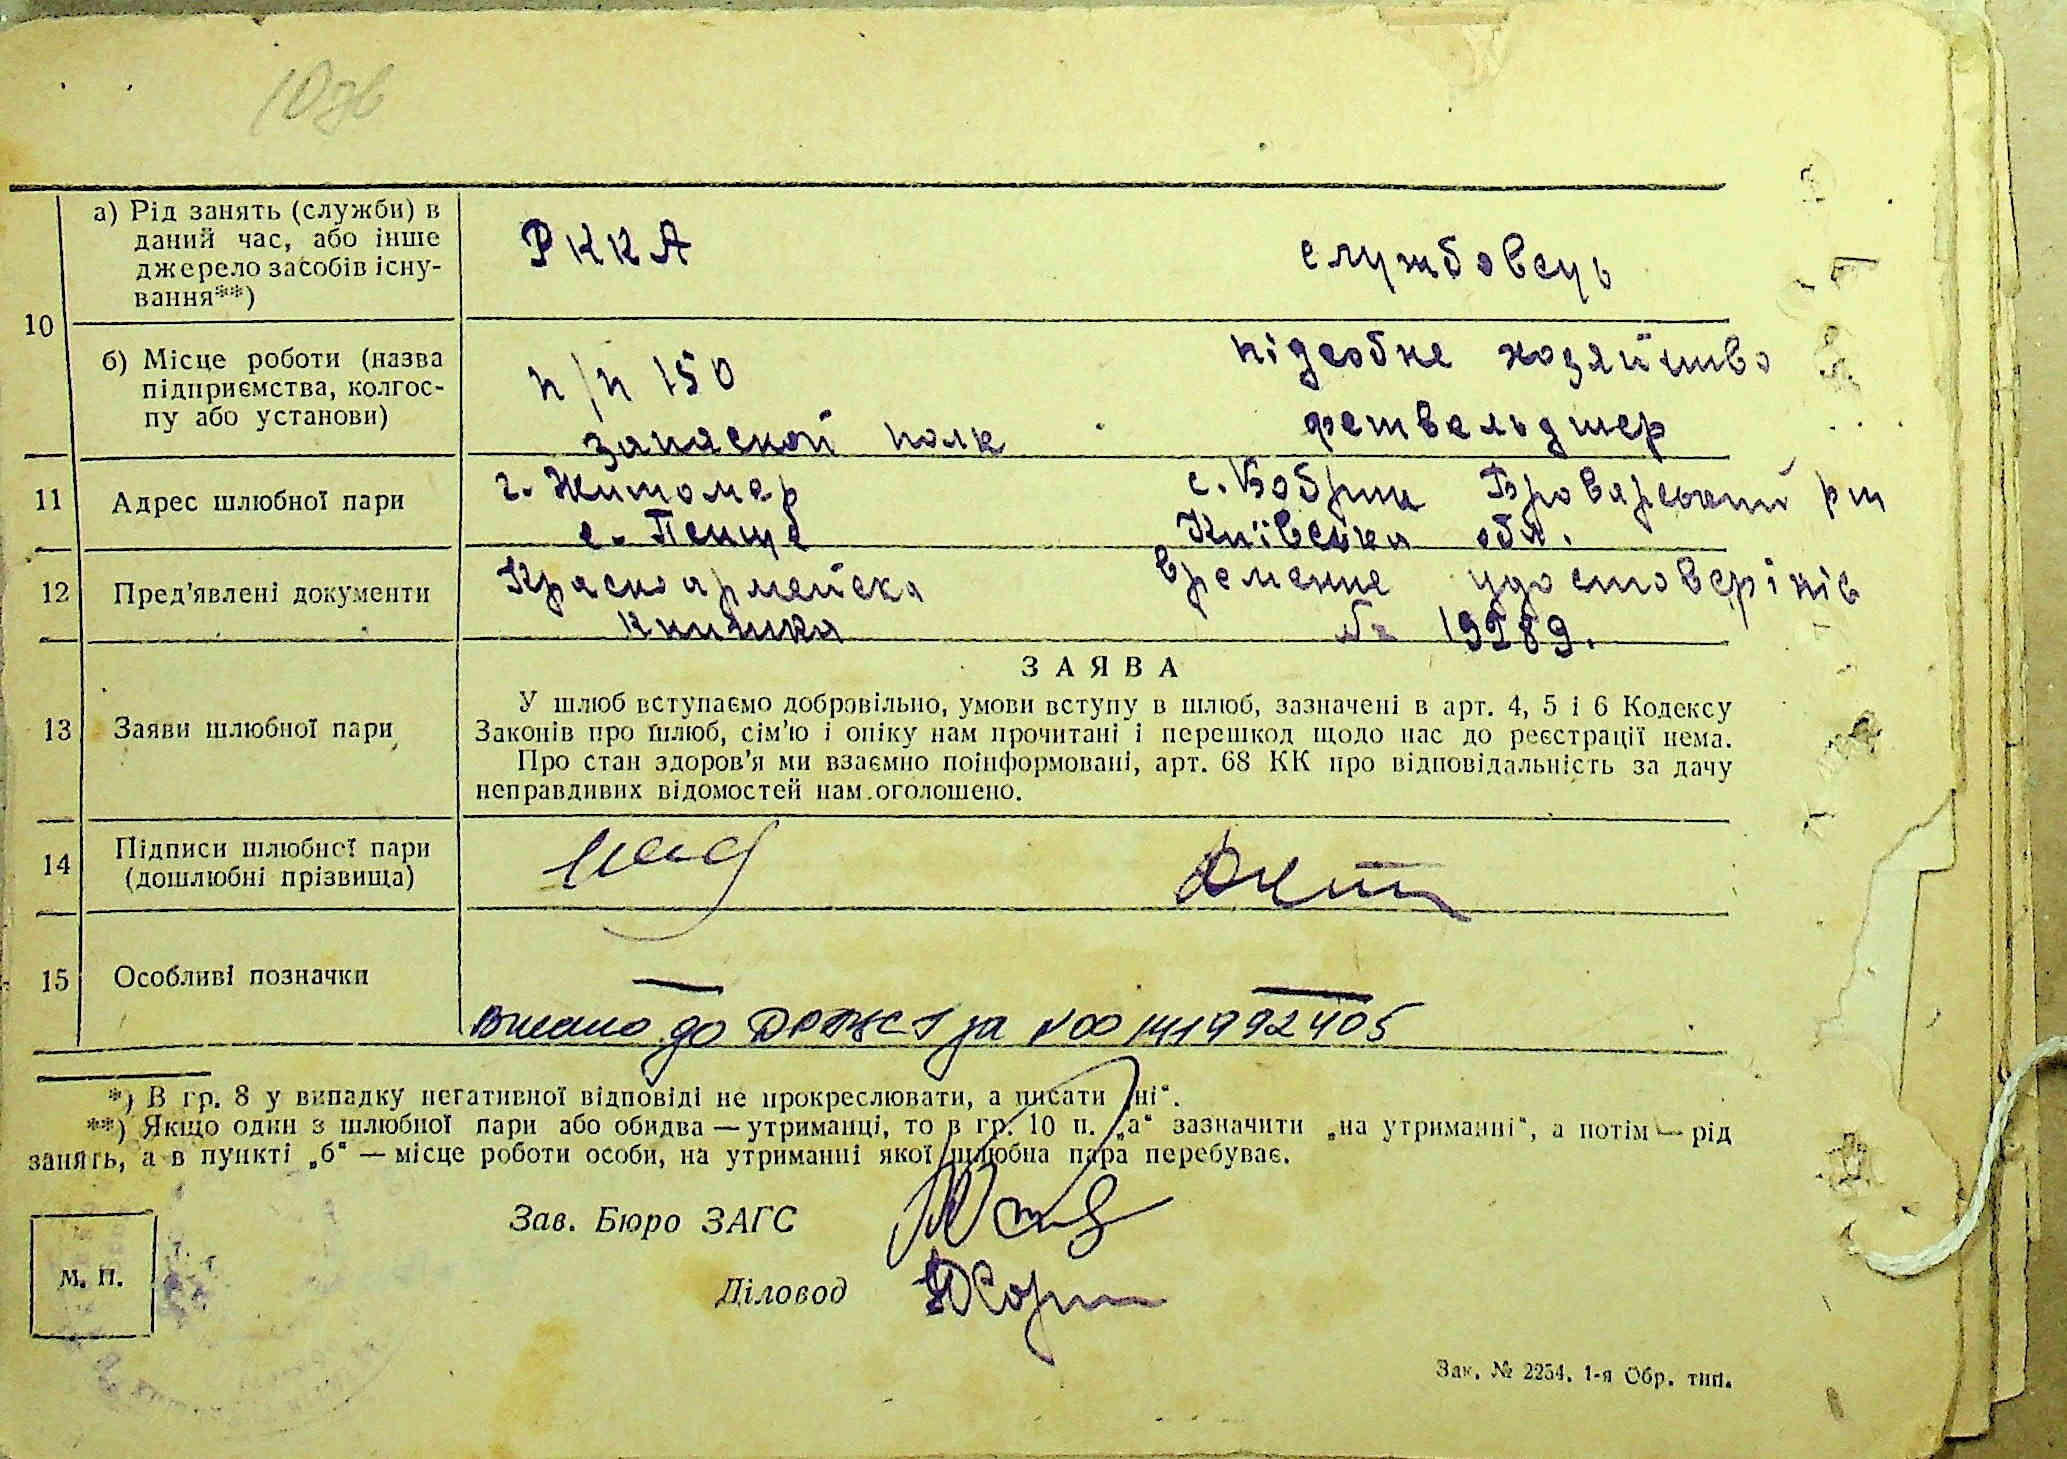 10 зв
10
а) Рід занять (служби) в
даний час, або інше
джерело засобів існу-
вання**)
РККА
службовець
б) Місце роботи (назва
підприємства, колгос-
пу або установи)
п/п 150
запаской полк
підсобне хозяйство
фетвельдшер
11
Адрес шлюбної пари
г. Житомер
с.
с. Бобрик Броварський рн
Київська обл.
12
Пред'явлені документи
Красноармейска
книжка
временне удостоверінiє
№ 19989.
13
Заяви шлюбної пари
ЗАЯВА
У шлюб вступаємо добровільно, умови вступу в шлюб, зазначені в арт. 4, 5 і 6 Кодексу
Законів про шлюб, сім'ю і опіку нам прочитані і перешкод щодо нас до реєстрації нема.
Про стан здоров'я ми взаємно поінформовані, арт. 68 КК про відповідальність за дачу
неправдивих відомостей нам оголошено.
14
Підписи шлюбної пари
(дошлюбні прізвища)
15
Особливі позначки
Внесано до за 1992405
*) В гр. 8 у випадку негативної відповіді не прокреслювати, а писати „ні“.
**) Якщо один з шлюбної пари або обидва — утриманці, то в гр. 10 п. „а“ зазначити „на утриманні“, а потім — рід
занять, а в пункті „б“ — місце роботи особи, на утриманні якої шлюбна пара перебуває.
Зав. Бюро ЗАГС
М. П.
Діловод
Зак. № 2254. 1-я Обр. тип.